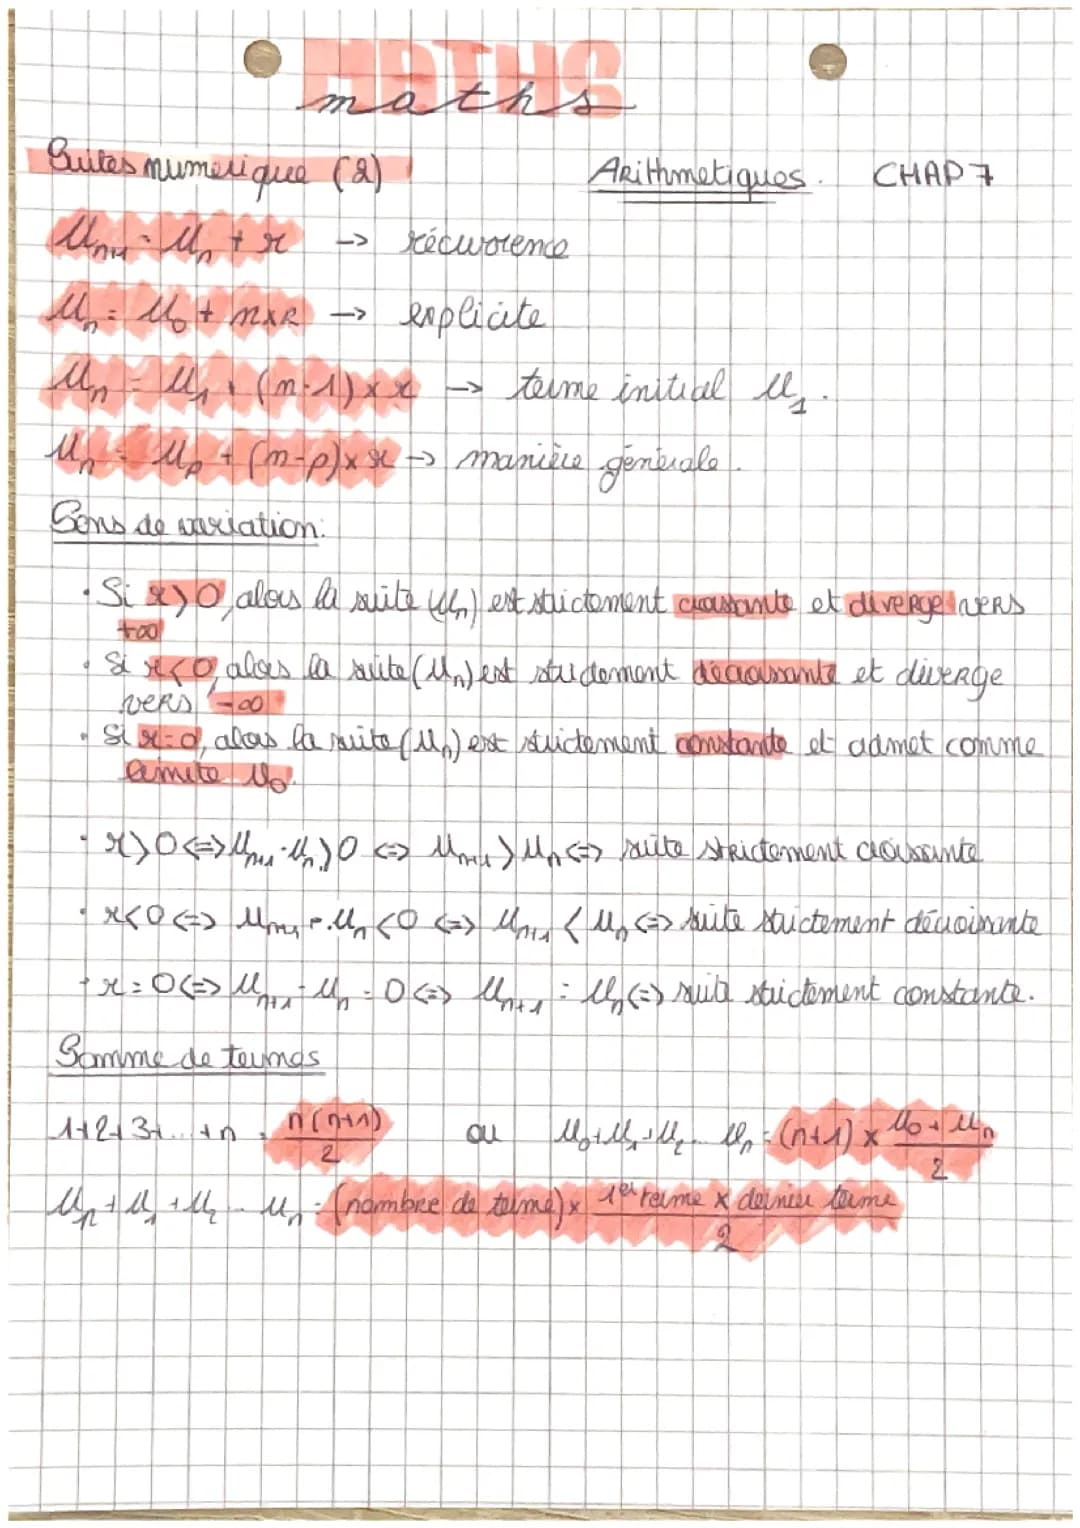 MATHS
maths
Suites numerique (2) Arithmetiques. CHAP 7
Un+1 = Un + r -> récurrence
Un = U0 + n×R -> explicite
Un = U1 + (n-1)×r -> terme initial U1.
Un = Up + (n-p)×r -> manière générale.
Sens de variation:
• Si r>0, alors la suite (Un) est strictement croissante et diverge vers
+∞
• Si r<0, alors la suite (Un) est strictement décroissante et diverge
vers -∞
• Si r=0, alors la suite (Un) est strictement constante et admet comme
limite U0.
• r>0 <=> Un+1-Un>0 <=> Un+1>Un <=> suite strictement croissante
• r<0 <=> Un+1-Un<0 <=> Un+1<Un <=> suite strictement décroissante
• r=0 <=> Un+1-Un=0 <=> Un+1=Un <=> suite strictement constante.
Somme de termes
1+2+3+...+n = n(n+1)/2 ou U0+U1+U2...Un = (n+1) × U0+Un/2
Un+U1+U2...Un = (nombre de terme) × 1er terme × dernier terme/2